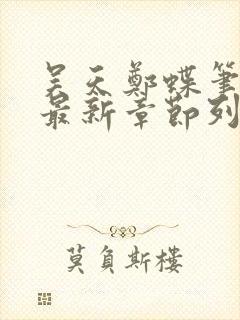 吴天郑蝶笔
最新章节列
莫负斯楼